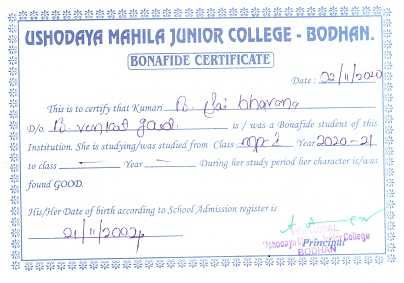 USHODAYA MAHILA JUNIOR COLLEGE - BODHAN.
BONAFIDE CERTIFICATE
Date : 02/11/2020
This is to certify that Kumari B. Sai bhavana
D/o. B. venkat goud. is / was a Bonafide student of this
Institution. She is studying/was studied from Class Year 2020-21
to class — Year — During her study period her character is/was
found GOOD.
His/Her Date of birth according to School Admission register is
21/11/2004
PRINCIPAL
Principal
Ushodaya Junior College
BODHAN